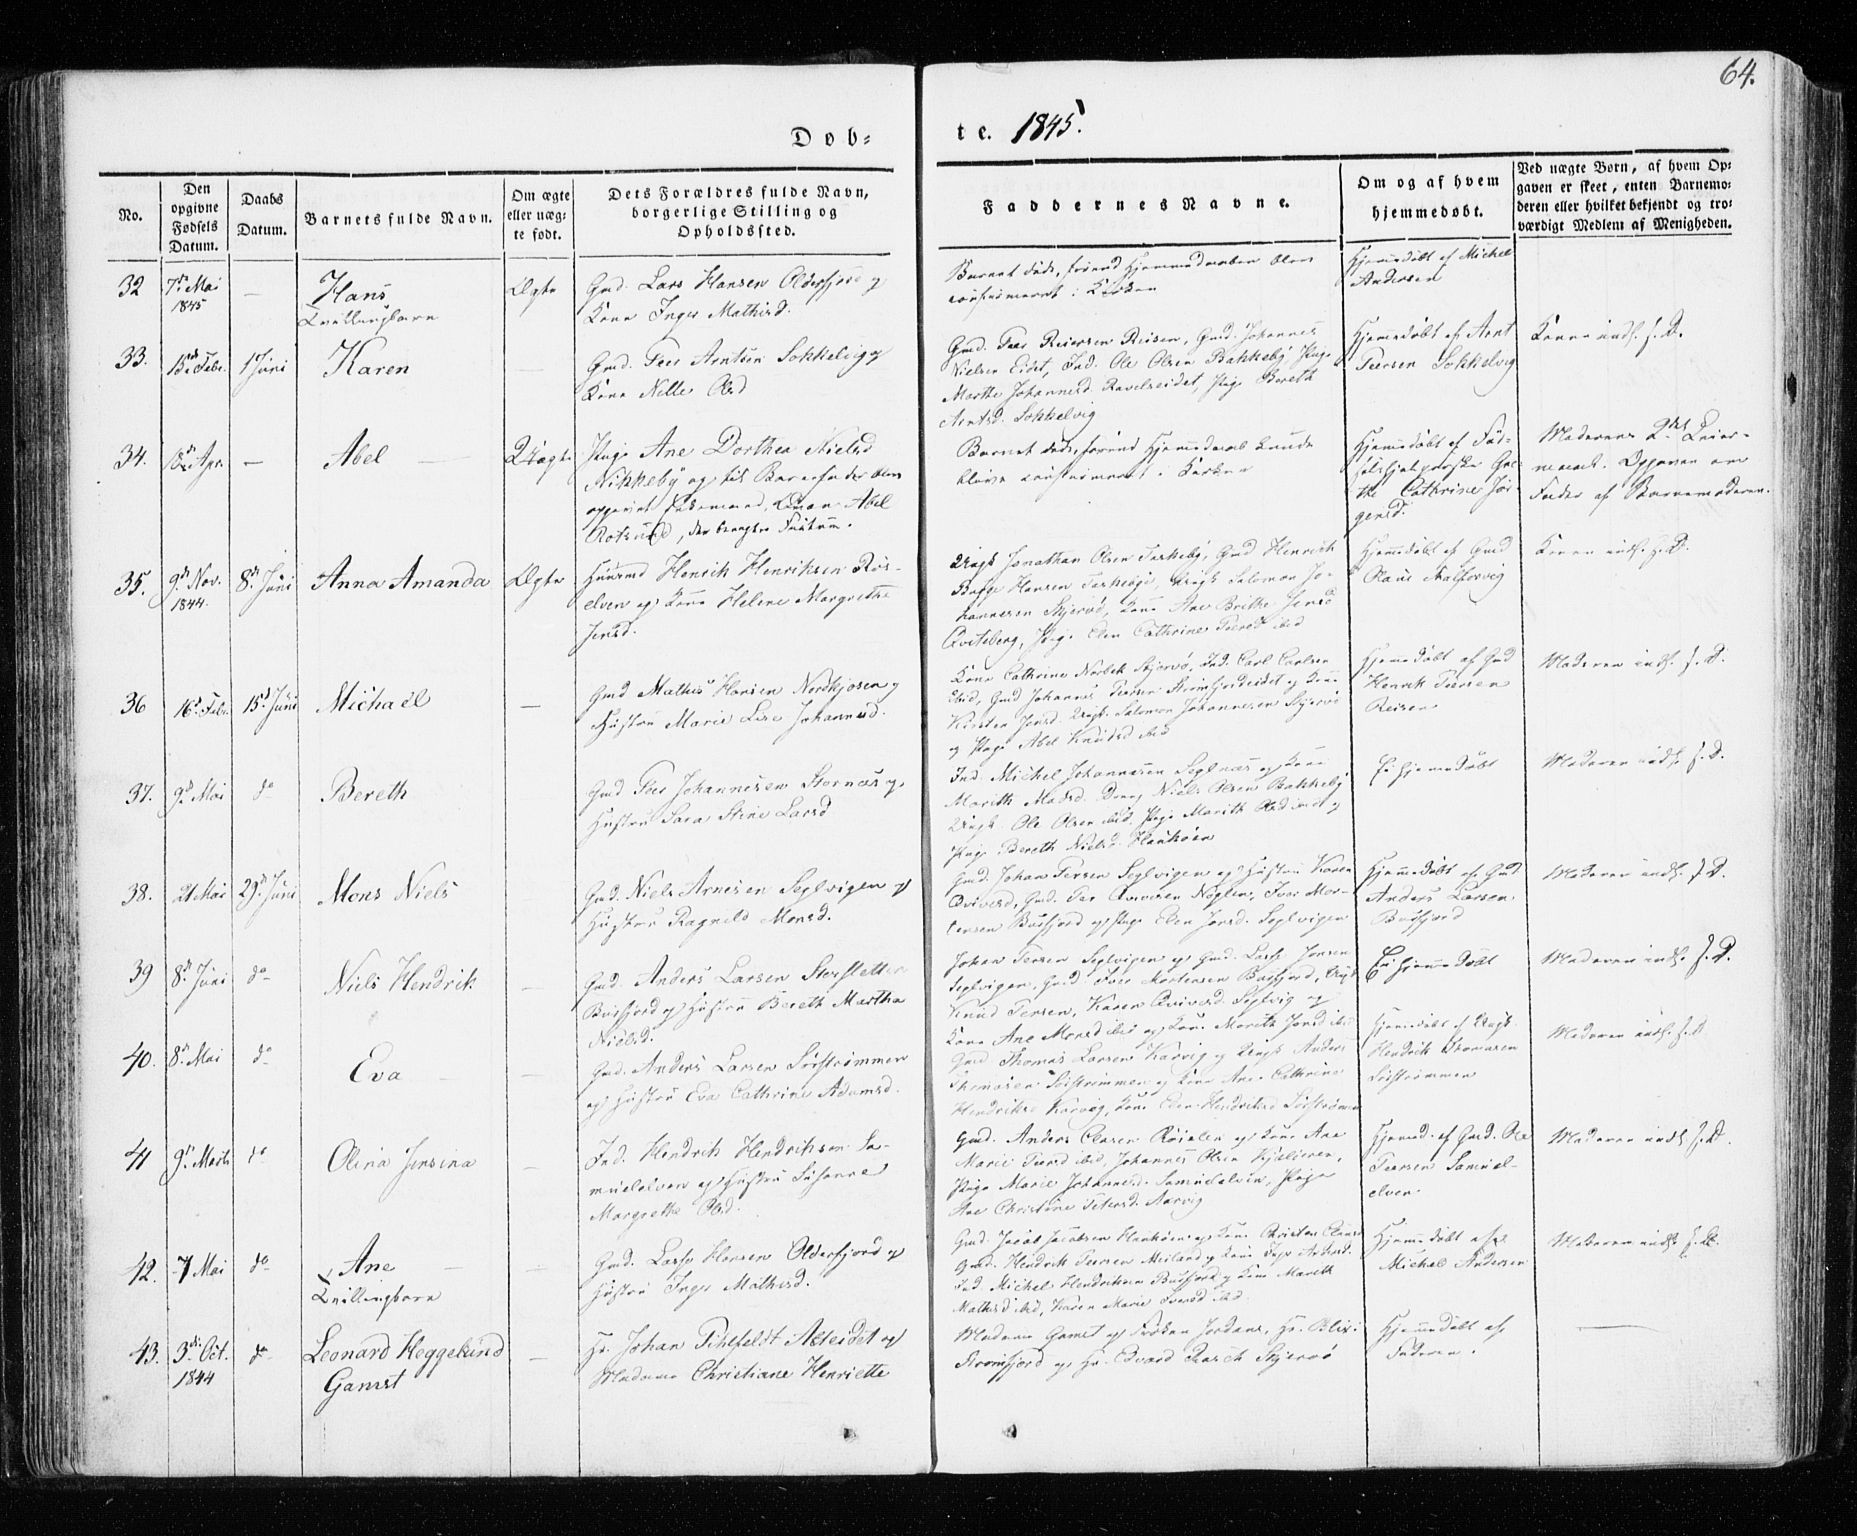 64.
Døb= te. 1845.
No.
Den opgivne Fødsels Datum.
Daabs Datum.
Barnets fulde Navn.
Om ægte eller uæg= te født.
Dets Forældres fulde Navn, borgerlige Stilling og Opholdssted.
Faddernes Navne.
Om og af hvem hjemmedøbt.
Ved uægte Børn, af hvem Op= gaven er skeet, enten Barnemo= deren eller hvilket bekjendt og tro= værdigt Medlem af Menigheden.
32 7de Mai 1845 — Hans Tvillingbarn Ægte
Gmd. Lars Hansen Olderfjord og
Kone Inger Mathisd.
Barnet døde, forend Hjemmedaaben blev
confirmeret i Kirken
Hjemmedøbt af Michel
Andersen
33. 15de Febr. 1 Juni Karen —
Gmd. Peer Arntsen Sokkelvig og
Kone Nille Olsd
Gmd. Peer Reiersen Reisen, Gmd. Johannes
Nielsen Eidet, Ind. Ole Olsen Bakkeby Pige
Marthe Johannesd. Ravelseidet, Pige Bereth
Arntsd. Sokkelvig
Hjemmedøbt af Arnt
Peersen Sokkelvig
Konen indl. f. D.
34. 18de Apr. — Abel Uægte
Pige Ane Dorthea Nielsd
Nikkeby og til Barnefader blev
opgivet Abel
Rotsund,
Barnet døde, forend Hjemmedaab kunde
blive confirmeret i Kirken
Hjemmedøbt af Jød=
Gre=
the Cathrine Jør=
gensd.
Moderens 2det Leier=
maal. Opgaven om
Fader af Barnemoderen.
35. 9de Nov. 1844. 8de Juni Anna Amanda Ægte
Huusmd Henrik Henriksen Rots=
elven og Kone Helene Margrethe
Jensd.
Ungk Jonathan Olsen Taskeby, Gmd Henrich
Hansen Taskeby, Ungk Salomon Jo=
hannesen Skjervø, Kone Ane Brithe Jensd
Qviteberg, Pige Elen Cathrine Peersd ibid
Hjemmedøbt af Gmd
Olaus
Konen indl. f. D.
36 16de Febr. 15de Juni Michael —
Gmd Mathis Hansen Nordkjosen og
Hustru Marie Lise Johannesd.
Kone Cathrine Norbek Skjervø, Ind. Carl Carlsen
ibid, Gmd Johannes Peersen Strømfjordeidet og Kone
Kirsten Jensd. Ungk. Salomon Johannesen Skjervø
og Pige Abel Knudsd ibid
Hjemmedøbt af Gmd
Henrik Peersen
Reisen
Moderen indl. f. D.
37. 9de Mai do Bereth
Gmd Peer Johannesen Stornæs og
Hustru Sara Stine Larsd
Ind. Michel Johannesen Seglnæs og Kone
Marith Madsd. Dreng Niels Olsen Bakkeby
Ungk. Ole Olsen ibid. Pige Marith Olsd ibid og
Pige Bereth Nielsd. Haukøen
Ei hjemmedøbt
Moderen indl. f. D.
38. 21 Mai 29de Juni Mons Niels
Gmd. Niels Arnesen Seglvigen og
Hustru Ragnild Monsd.
Gmd. Johan Persen Seglvigen og Hustru Karen
Qvivesd., Gmd. Per Qvivesen Nøglen, Iver Mor=
tensen Burfjord og Pige Elen Jonsd. Seglvigen
Hjemmedøbt af Gmd
Anders Larsen
Burfjord
Moderen indl. f. D.
39 8de Juni do Niels Hendrik —
Gmd. Anders Larsen Storsletten
Burfjord og Hustru Bereth Martha
Nielsd.
Johan Persen Seglvigen og Gmd. Lars Jonsen
Seglvigen, Gmd Iver Mortensen Burfjord, Ungk
Knud Persen, Karen Qvivesd. Seglvig og
Kone Ane Monsd ibid og Kone Marith Jonsd ibid
Ei hjemmedøbt
Moderen indl. f. D.
40. 8de Mai do Eva —
Gmd. Anders Larsen Sørstrømmen
og Hustru Eva Cathrine Adamsd.
Gmd Thomas Larsen Karvig og Ungk Anders
Thomasen Sørstrømmen og Kone Ane Cathrine
Hendriksd Karvig, Kone Elen Hendriksd Sørstrømmen
Hjemmedøbt af Ungk.
Hendrik Thomasen
Sørstrømmen
Moderen indl. f. D
41 9de Marts do Olina Jensina —
Ind. Hendrik Hendriksen Sa=
muelelven og Hustru Susanne
Margrethe Olsd.
Gmd. Anders Clasen Røielen og Kone Ane
Marie Peersd ibid, Johannes Olsen
Pige Marie Johannesd. Samuelelven, Pige
Ane Christine Petersd. Aarvig
Hjemd. af Gmd. Ole
Peersen Samuel=
elven
Moderen indl. f. D.
42. 7 Mai do Ane Tvillingbarn —
Gmd. Lars Hansen Olderfjord og
Hustru Inger Mathisd.
Gmd. Jacob Jacobsen Haukøen og Kone Christen Clausd
Gmd. Hendrik Peersen Meiland og Kone Inger Andersd.
Ind. Michel Hendriksen Burfjord og Kone Marith
Mathisd ibid, Karen Marie Iversd ibid.
Hjemmedøbt af
Michel Andersen
Moderen indl. f. D.
43. 3die Oct. 1844 do Leonard Heggelund Gamst —
Hr. Johan Pihlfeldt Alteidet og
Madame Christiane Henriette
Madame Gamst og Frøken Jordans, Hr. Blix i
Strømfjord og Hr. Edvard Rasch Skjervø
Hjemmedøbt af
Faderen.